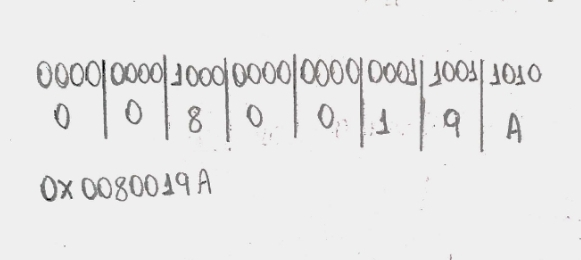 0000|0000|1000|0000|0000|0001|1001|1010
0|0|8|0|0|1|9|A
0x0080019A